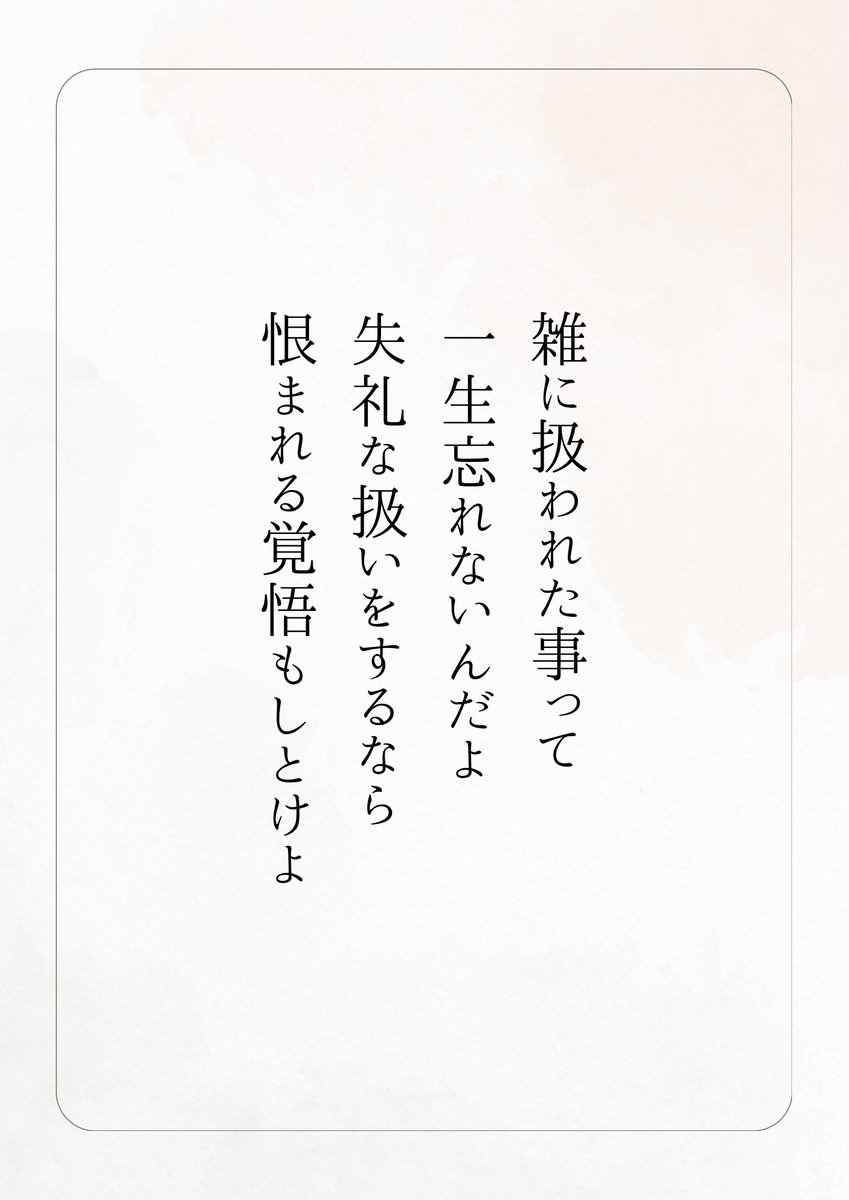 雑に扱われた事って
一生忘れないんだよ
失礼な扱いをするなら
恨まれる覚悟もしとけよ